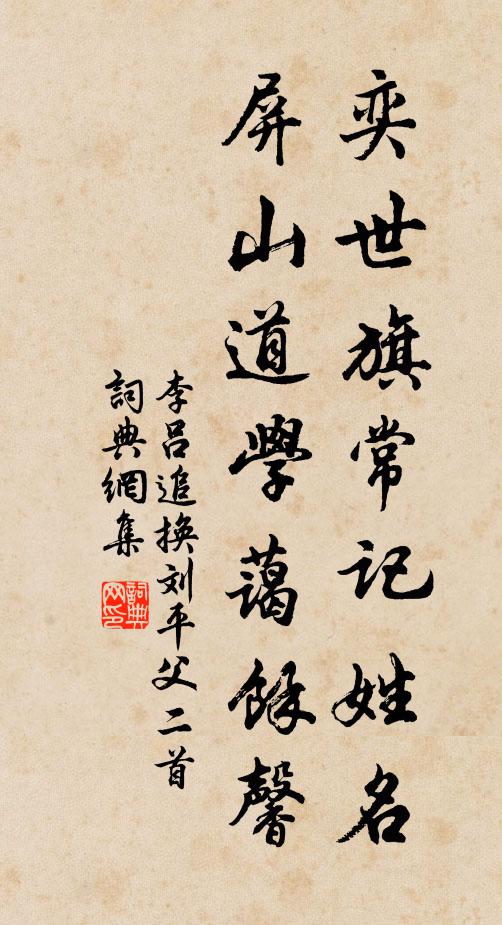 奕世旗常记姓名
屏山道學藹餘馨
李吕追换刘平父二首
詞典網集
詞典网印